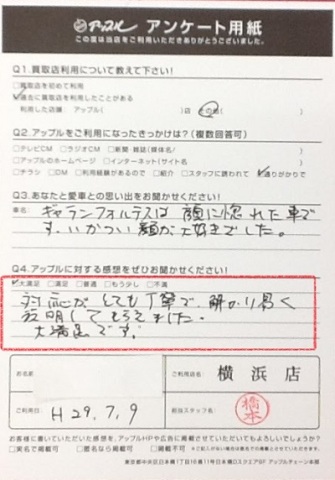 アップル アンケート用紙
この度は当店をご利用いただきありがとうございました。
Q1.買取店利用について教えて下さい!
□買取店を初めて利用
✓過去に買取店を利用したことがある
利用した店舗: アップル( )店 その他( )
Q2.アップルをご利用になったきっかけは?(複数回答可)
□テレビCM □ラジオCM □新聞・雑誌(媒体名/ )
□アップルのホームページ □インターネット(サイト名 )
□チラシ □DM □利用経験があるので □紹介 □スタッフに誘われて ✓通りがかりで
Q3.あなたと愛車との思い出をお聞かせください!
車名: ギャランフォルティスは 顔に惚れた車で
す。いかつい顔が大好きでした。
Q4.アップルに対する感想をぜひお聞かせください!
✓大満足 □満足 □普通 □もう少し □不満
対応がとても丁寧で、解かり易く
説明してもらえました。
大満足です。
お名前
ご利用店名: 横浜店
ご利用日: H29.7.9
担当スタッフ名: 橋本
お客様に書いていただいた感想を、アップルHPや広告に掲載させていただいてもよろしいでしょうか?
□実名で掲載可 □匿名なら掲載可 □掲載不可
東京都中央区日本橋1丁目16番11号日本橋Dスクエア5F アップルチェーン本部